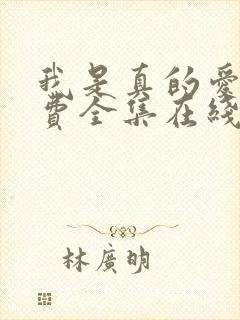 我是真的愛
費全集在綫
林廣明